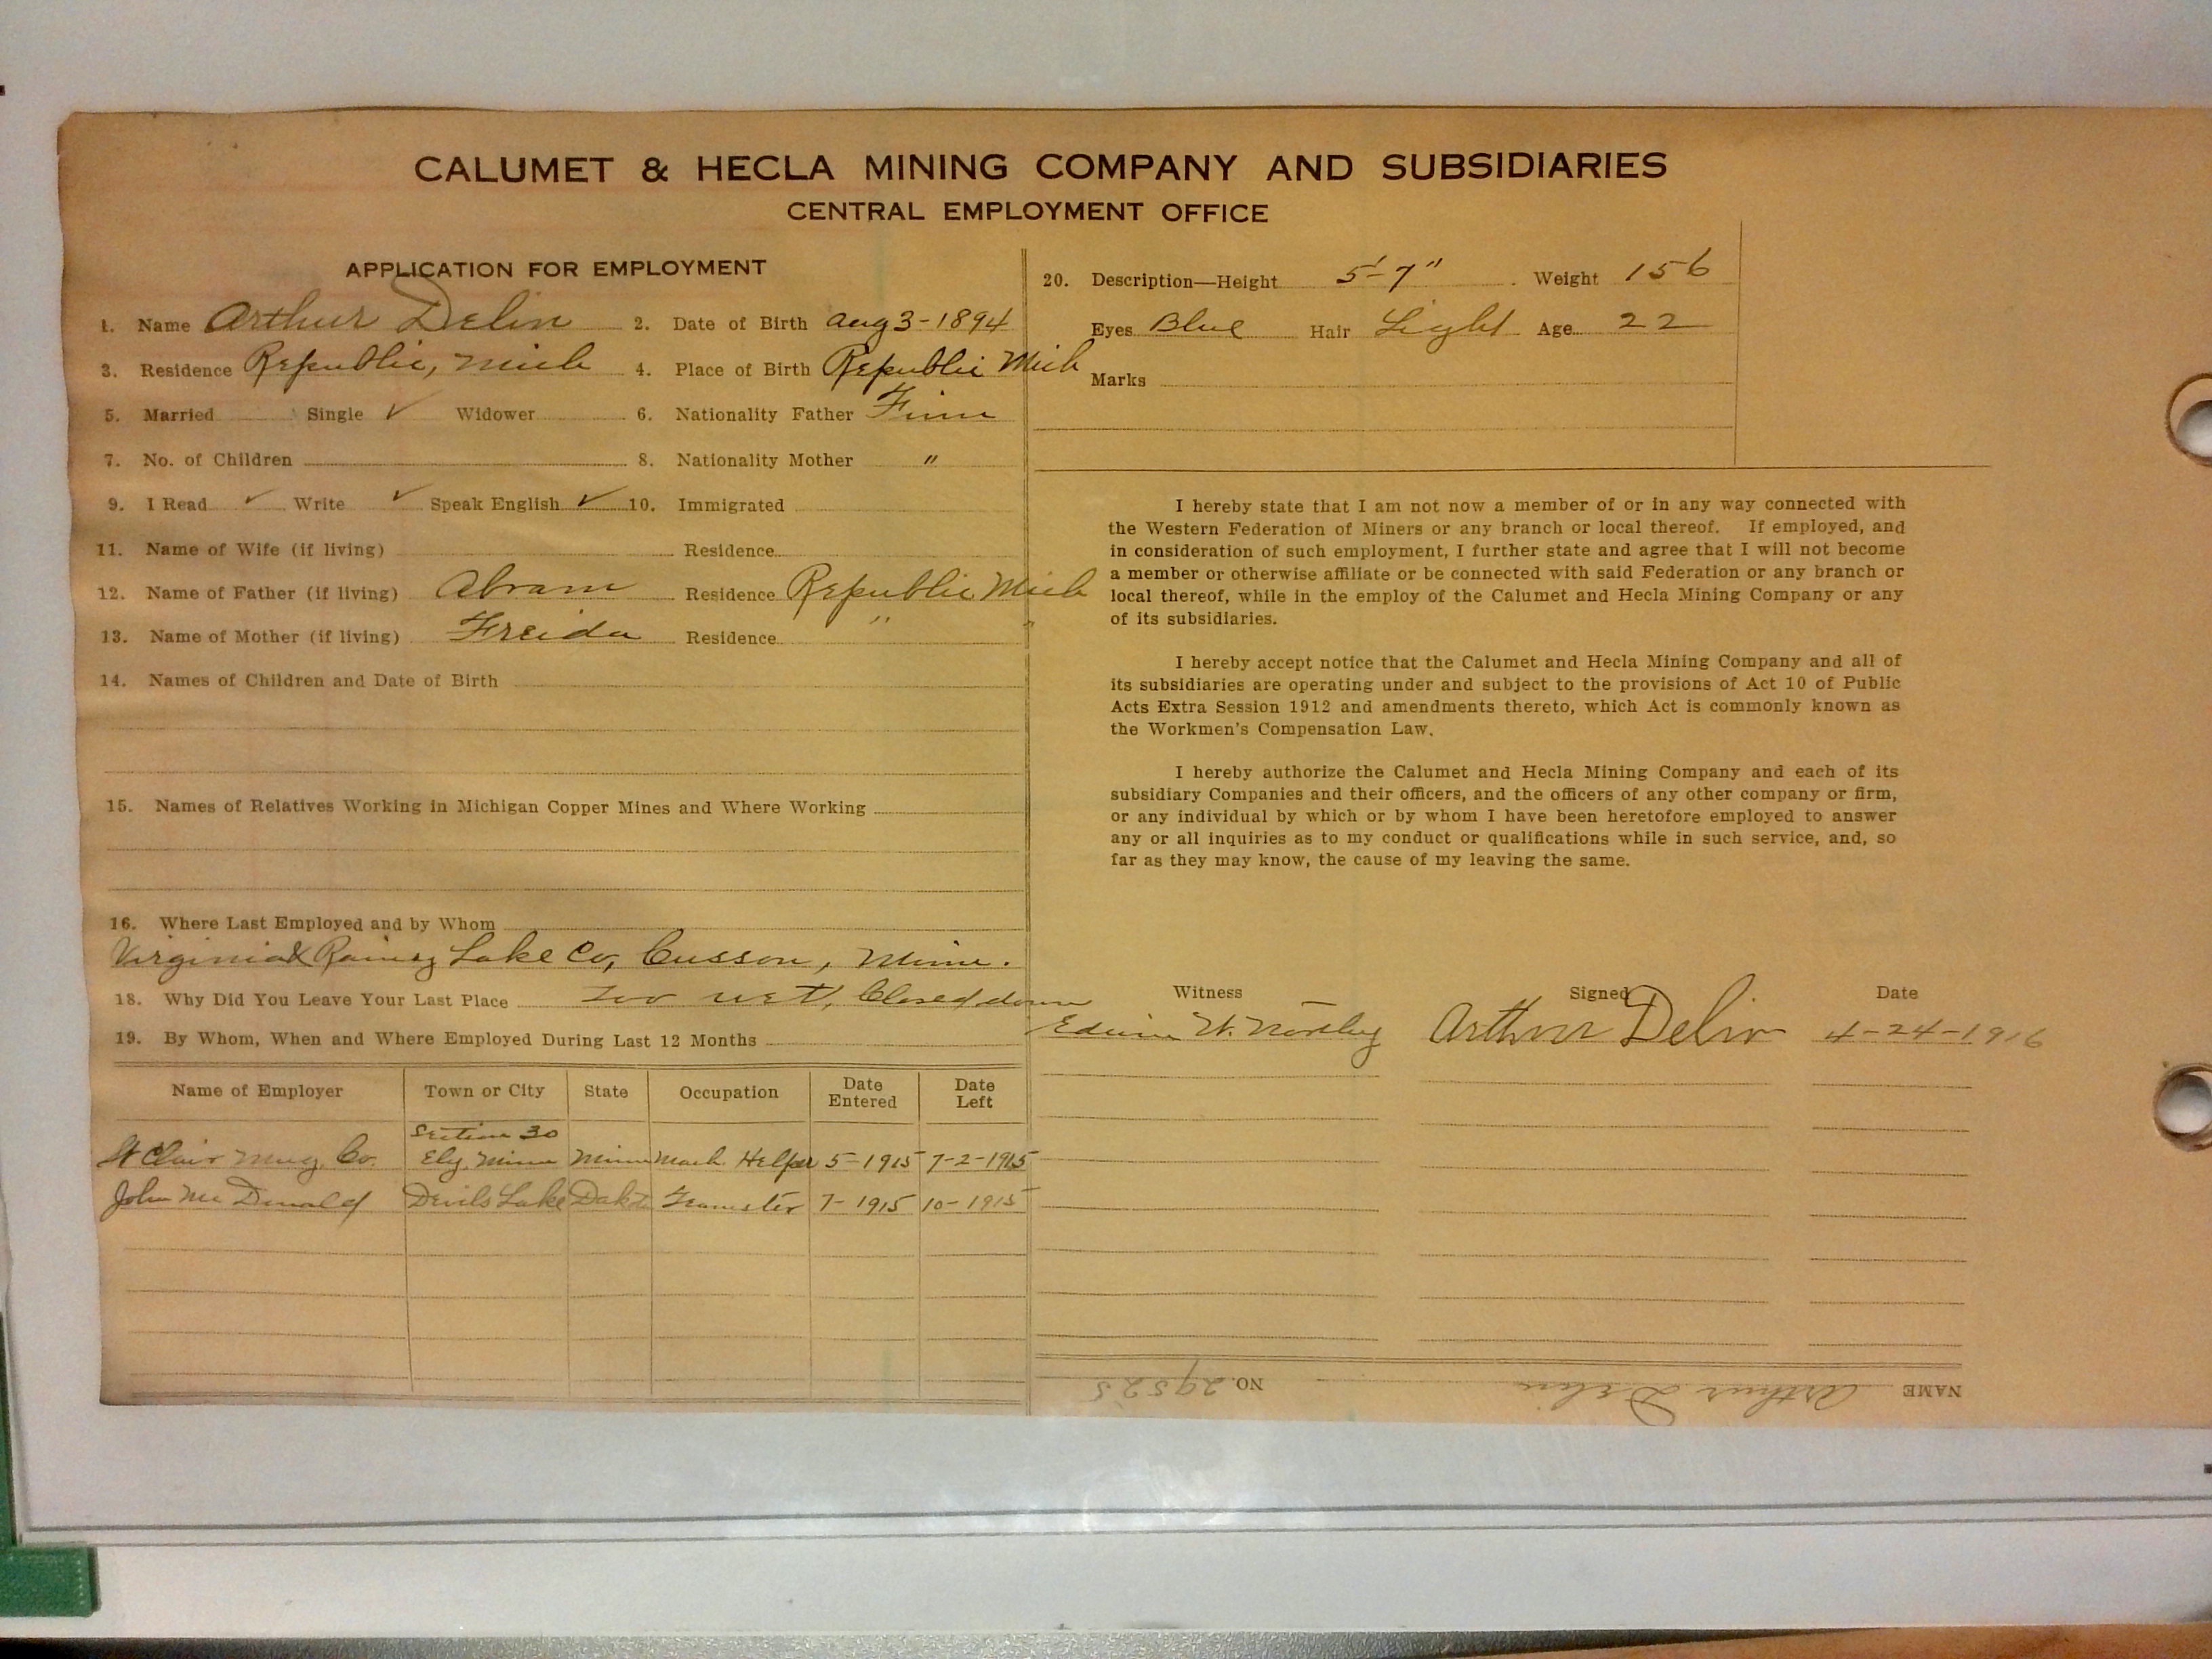 CALUMET & HECLA MINING COMPANY AND SUBSIDIARIES
CENTRAL EMPLOYMENT OFFICE
APPLICATION FOR EMPLOYMENT
1. Name Arthur Delin 2. Date of Birth Aug 3-1894
3. Residence Republic, Mich 4. Place of Birth Republic Mich
5. Married Single ✓ Widower 6. Nationality Father Finn
7. No. of Children 8. Nationality Mother "
9. I Read ✓ Write ✓ Speak English ✓ 10. Immigrated
11. Name of Wife (if living) Residence
12. Name of Father (if living) Abram Residence Republic Mich
13. Name of Mother (if living) Freida Residence " "
14. Names of Children and Date of Birth
15. Names of Relatives Working in Michigan Copper Mines and Where Working
16. Where Last Employed and by Whom
Virginia & Rainy Lake Co, Cusson, Minn.
18. Why Did You Leave Your Last Place Too wet, Closed down
19. By Whom, When and Where Employed During Last 12 Months
Name of Employer Town or City State Occupation Date Entered Date Left
Section 30
St Clair Mng. Co. Ely, Minn Minn Mach. Helper 5-1915 7-2-1915
John McDonald Devils Lake Dakt Teamster 7-1915 10-1915
20. Description—Height 5'-7" Weight 156
Eyes Blue Hair Light Age 22
Marks
I hereby state that I am not now a member of or in any way connected with
the Western Federation of Miners or any branch or local thereof. If employed, and
in consideration of such employment, I further state and agree that I will not become
a member or otherwise affiliate or be connected with said Federation or any branch or
local thereof, while in the employ of the Calumet and Hecla Mining Company or any
of its subsidiaries.
I hereby accept notice that the Calumet and Hecla Mining Company and all of
its subsidiaries are operating under and subject to the provisions of Act 10 of Public
Acts Extra Session 1912 and amendments thereto, which Act is commonly known as
the Workmen's Compensation Law.
I hereby authorize the Calumet and Hecla Mining Company and each of its
subsidiary Companies and their officers, and the officers of any other company or firm,
or any individual by which or by whom I have been heretofore employed to answer
any or all inquiries as to my conduct or qualifications while in such service, and, so
far as they may know, the cause of my leaving the same.
Witness Signed Date
Edwin W. Arthur Delin 4-24-1916
NAME Arthur Delin NO. 29525